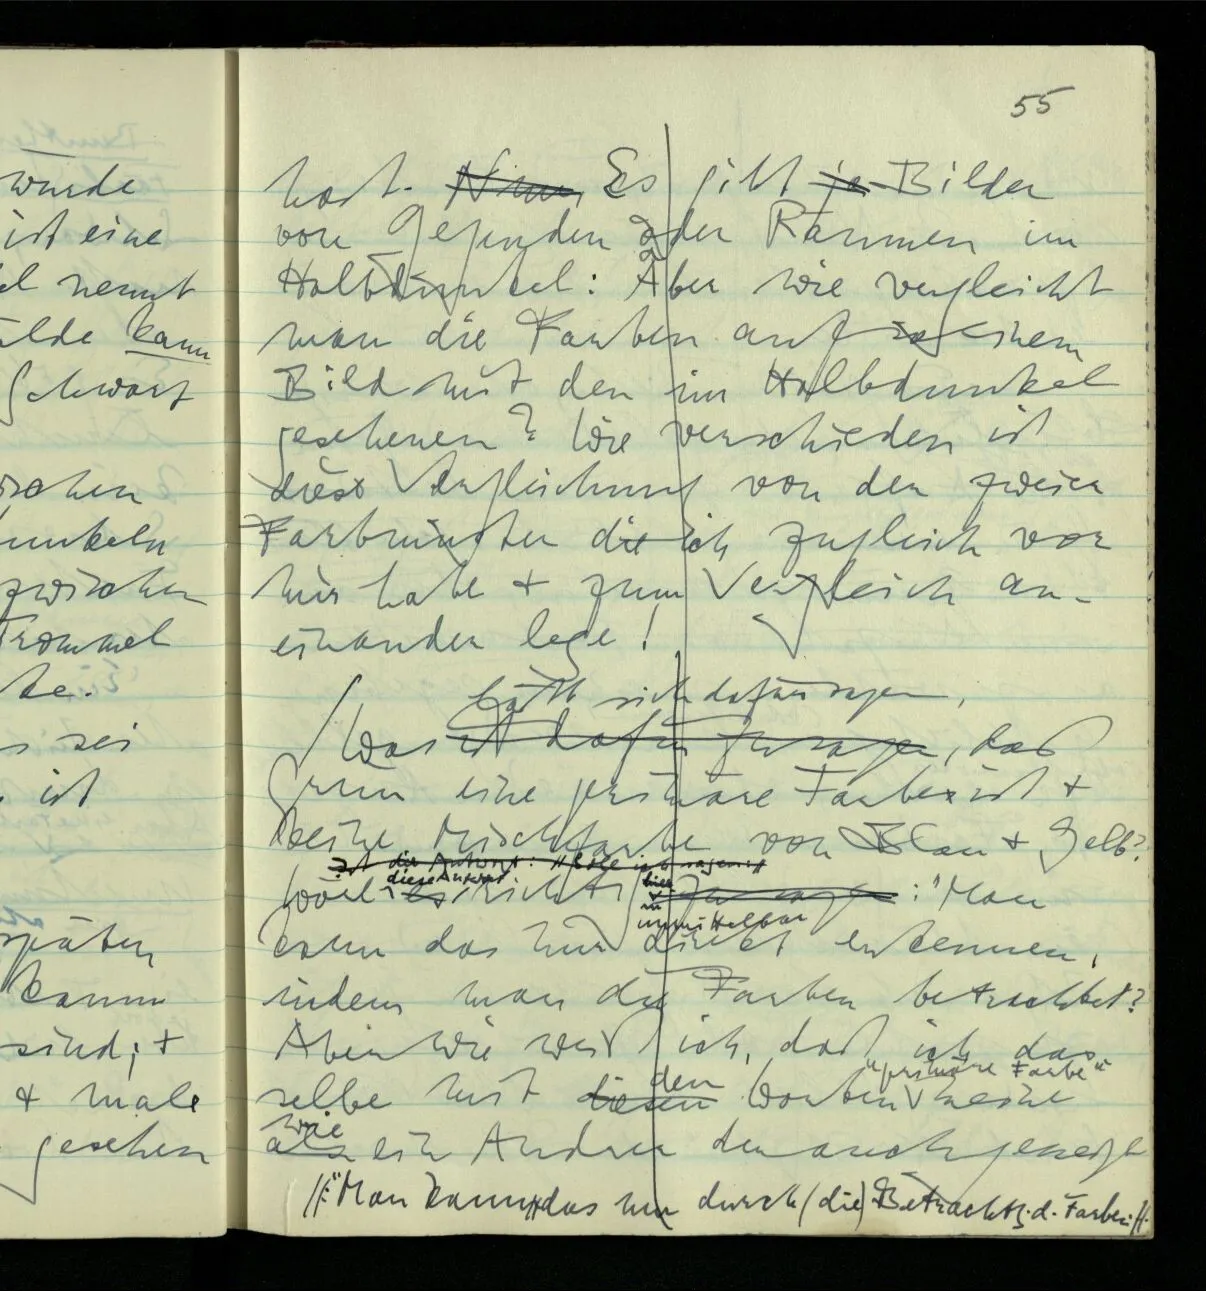 55
wurde
ist eine
nennt
kann
Schwarz
zwischen
Trommel
te.
s sei
ist
später
kann
sind; +
+ male
gesehen
hast. Nimm Es gibt ja Bilder
von Gegenden oder Räumen im
Halbdunkel: Aber wie vergleicht
man die Farben auf so einem
Bild mit den im Halbdunkel
gesehenen? Wie verschieden ist
diese Vergleichung von den zweier
Farbmuster die ich zugleich vor
mir habe + zum Vergleich an-
einander lege!
läßt sich dafür sagen,
Was ist dafür zu sagen, daß
Grün eine primäre Farbe ist +
keine Mischfarbe von Blau + Gelb?
Ist die Antwort:
diese Antwort
Wäre es richtig zu sagen: "Man
unmittelbar
kann das nur direkt erkennen,
indem man die Farben betrachtet?
Aber wie weiß ich, daß ich das
den "primäre Farbe"
selbe mit diesen Worten meine
wie
als ein Andrer der auch geneigt
"Man kann das nur durch (die) Betrachtg. d. Farben